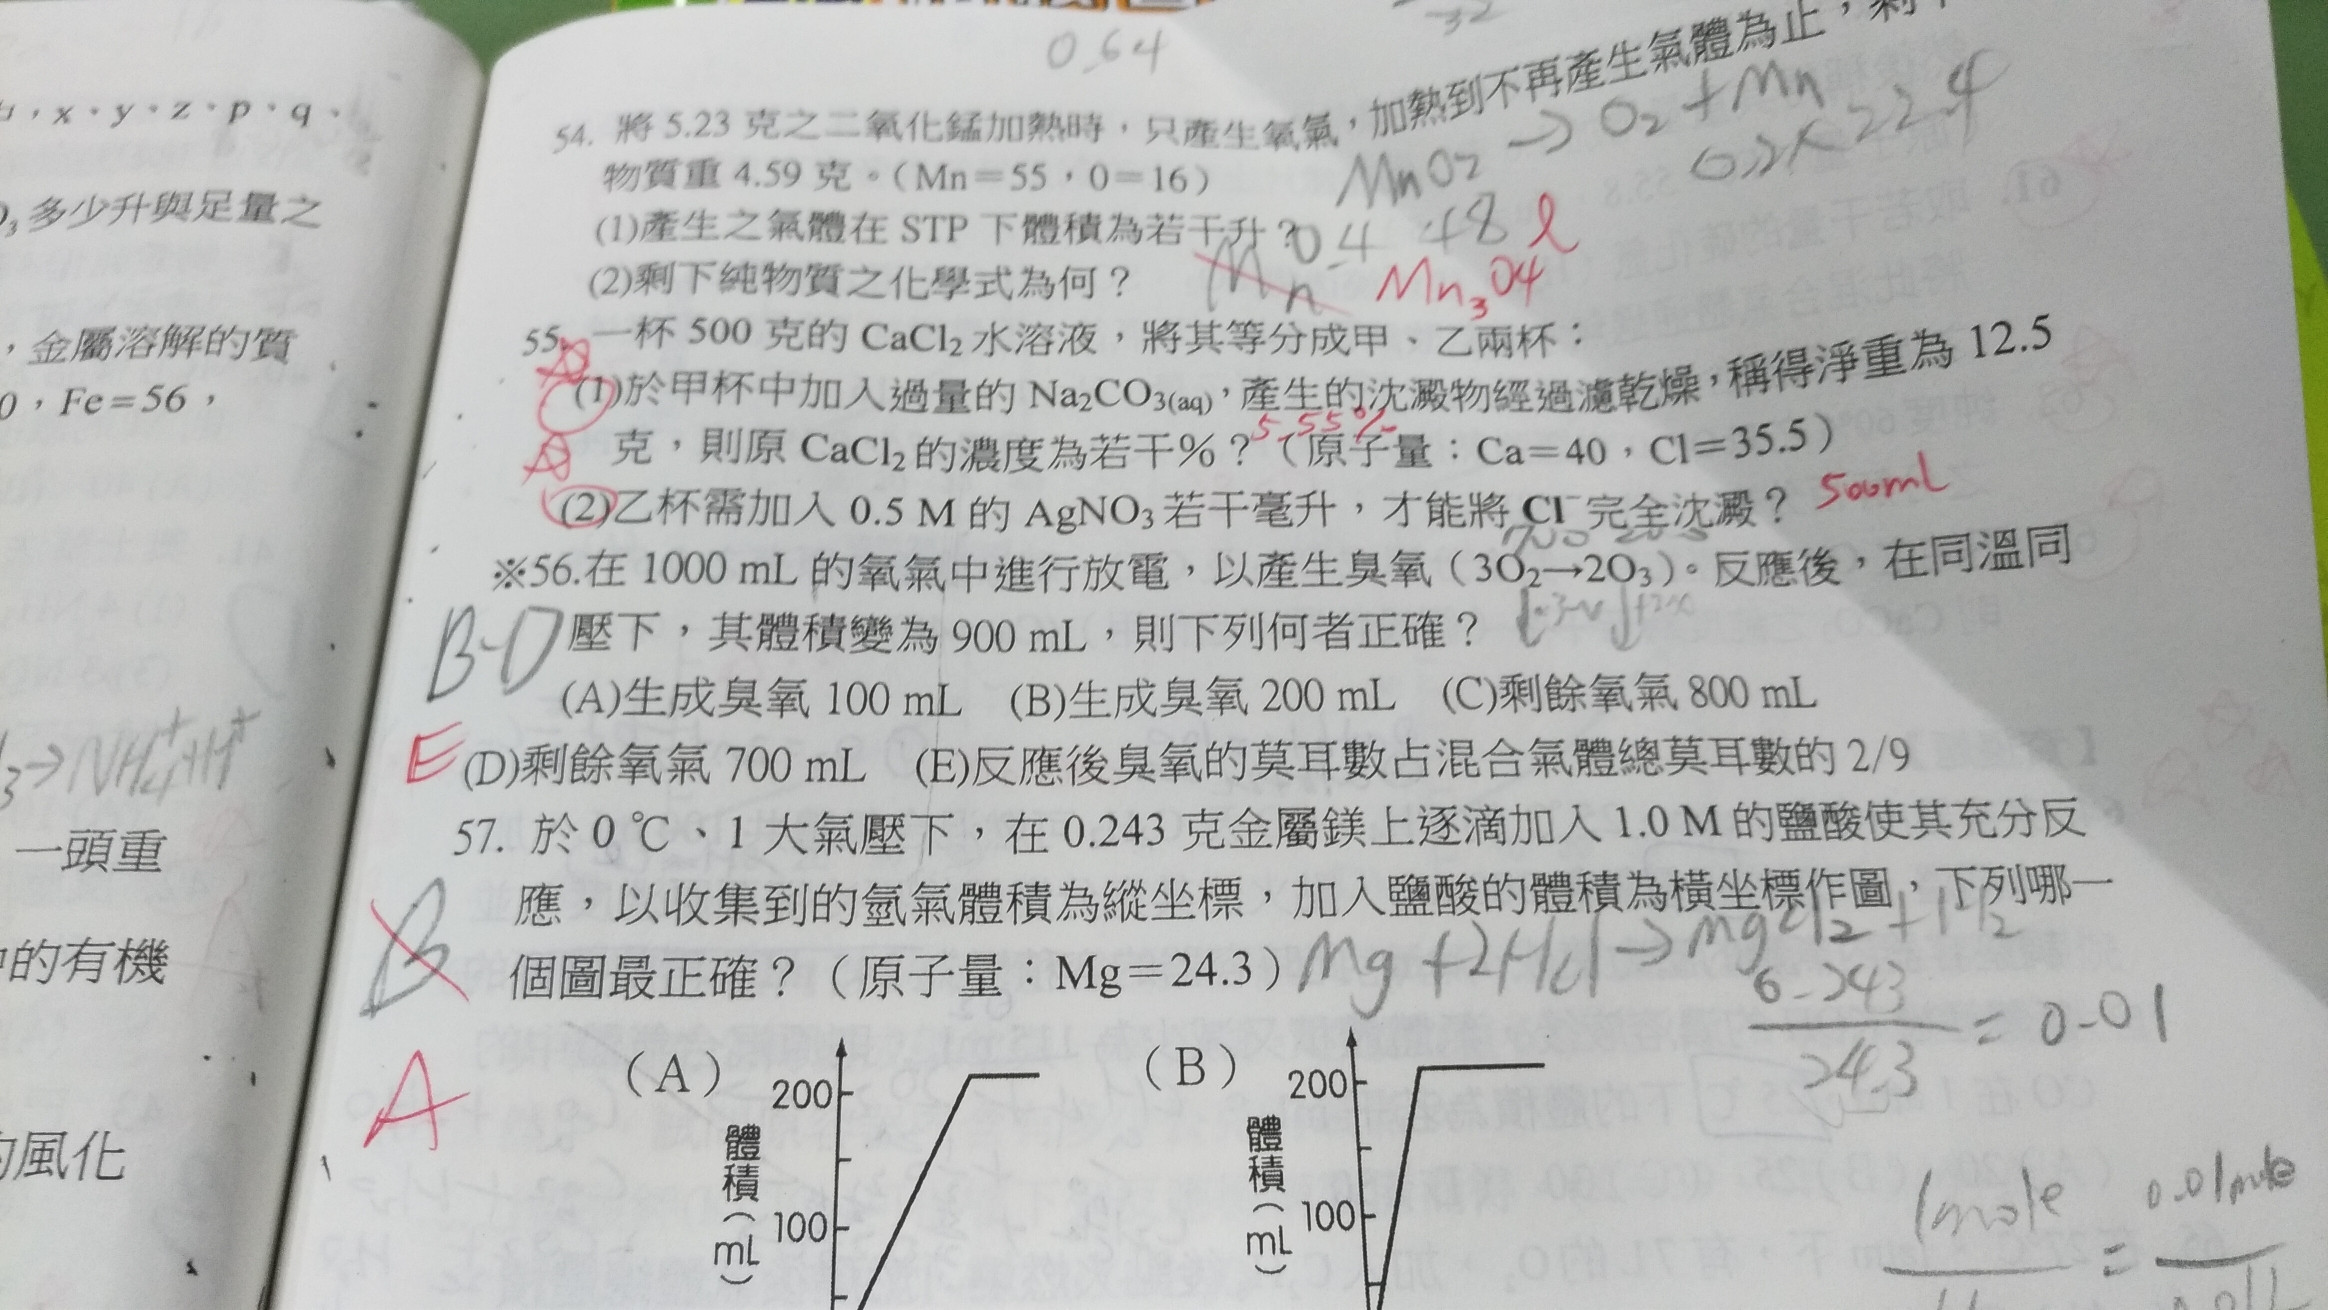 ，x、y、z、p、q、
O₃多少升與足量之
，金屬溶解的質
0，Fe＝56，
₃→NH₄⁺+H⁺
一頭重
的有機
的風化
32
0.64
54. 將 5.23 克之二氧化錳加熱時，只產生氧氣，加熱到不再產生氣體為止，剩下
物質重 4.59 克。（Mn＝55，O＝16）
MnO₂→O₂+Mn
0.2×22.4
(1)產生之氣體在 STP 下體積為若干升？
0.448 l
(2)剩下純物質之化學式為何？
Mn Mn₃O4
55. 一杯 500 克的 CaCl₂ 水溶液，將其等分成甲、乙兩杯：
(1)於甲杯中加入過量的 Na₂CO₃(aq)，產生的沈澱物經過濾乾燥，稱得淨重為 12.5
克，則原 CaCl₂ 的濃度為若干％？（原子量：Ca＝40，Cl＝35.5）
5.55%
(2)乙杯需加入 0.5 M 的 AgNO₃ 若干毫升，才能將 Cl⁻ 完全沈澱？
500mL
※56.在 1000 mL 的氧氣中進行放電，以產生臭氧（3O₂→2O₃）。反應後，在同溫同
壓下，其體積變為 900 mL，則下列何者正確？
BD
(A)生成臭氧 100 mL (B)生成臭氧 200 mL (C)剩餘氧氣 800 mL
E
(D)剩餘氧氣 700 mL (E)反應後臭氧的莫耳數占混合氣體總莫耳數的 2/9
57. 於 0 ℃、1 大氣壓下，在 0.243 克金屬鎂上逐滴加入 1.0 M 的鹽酸使其充分反
應，以收集到的氫氣體積為縱坐標，加入鹽酸的體積為橫坐標作圖，下列哪一
個圖最正確？（原子量：Mg＝24.3）
B
A
Mg+2HCl→MgCl₂+H₂
0.243
24.3
=0.01
1mole
=
0.01mole
（A）
200
體積（mL）
100
（B）
200
體積（mL）
100